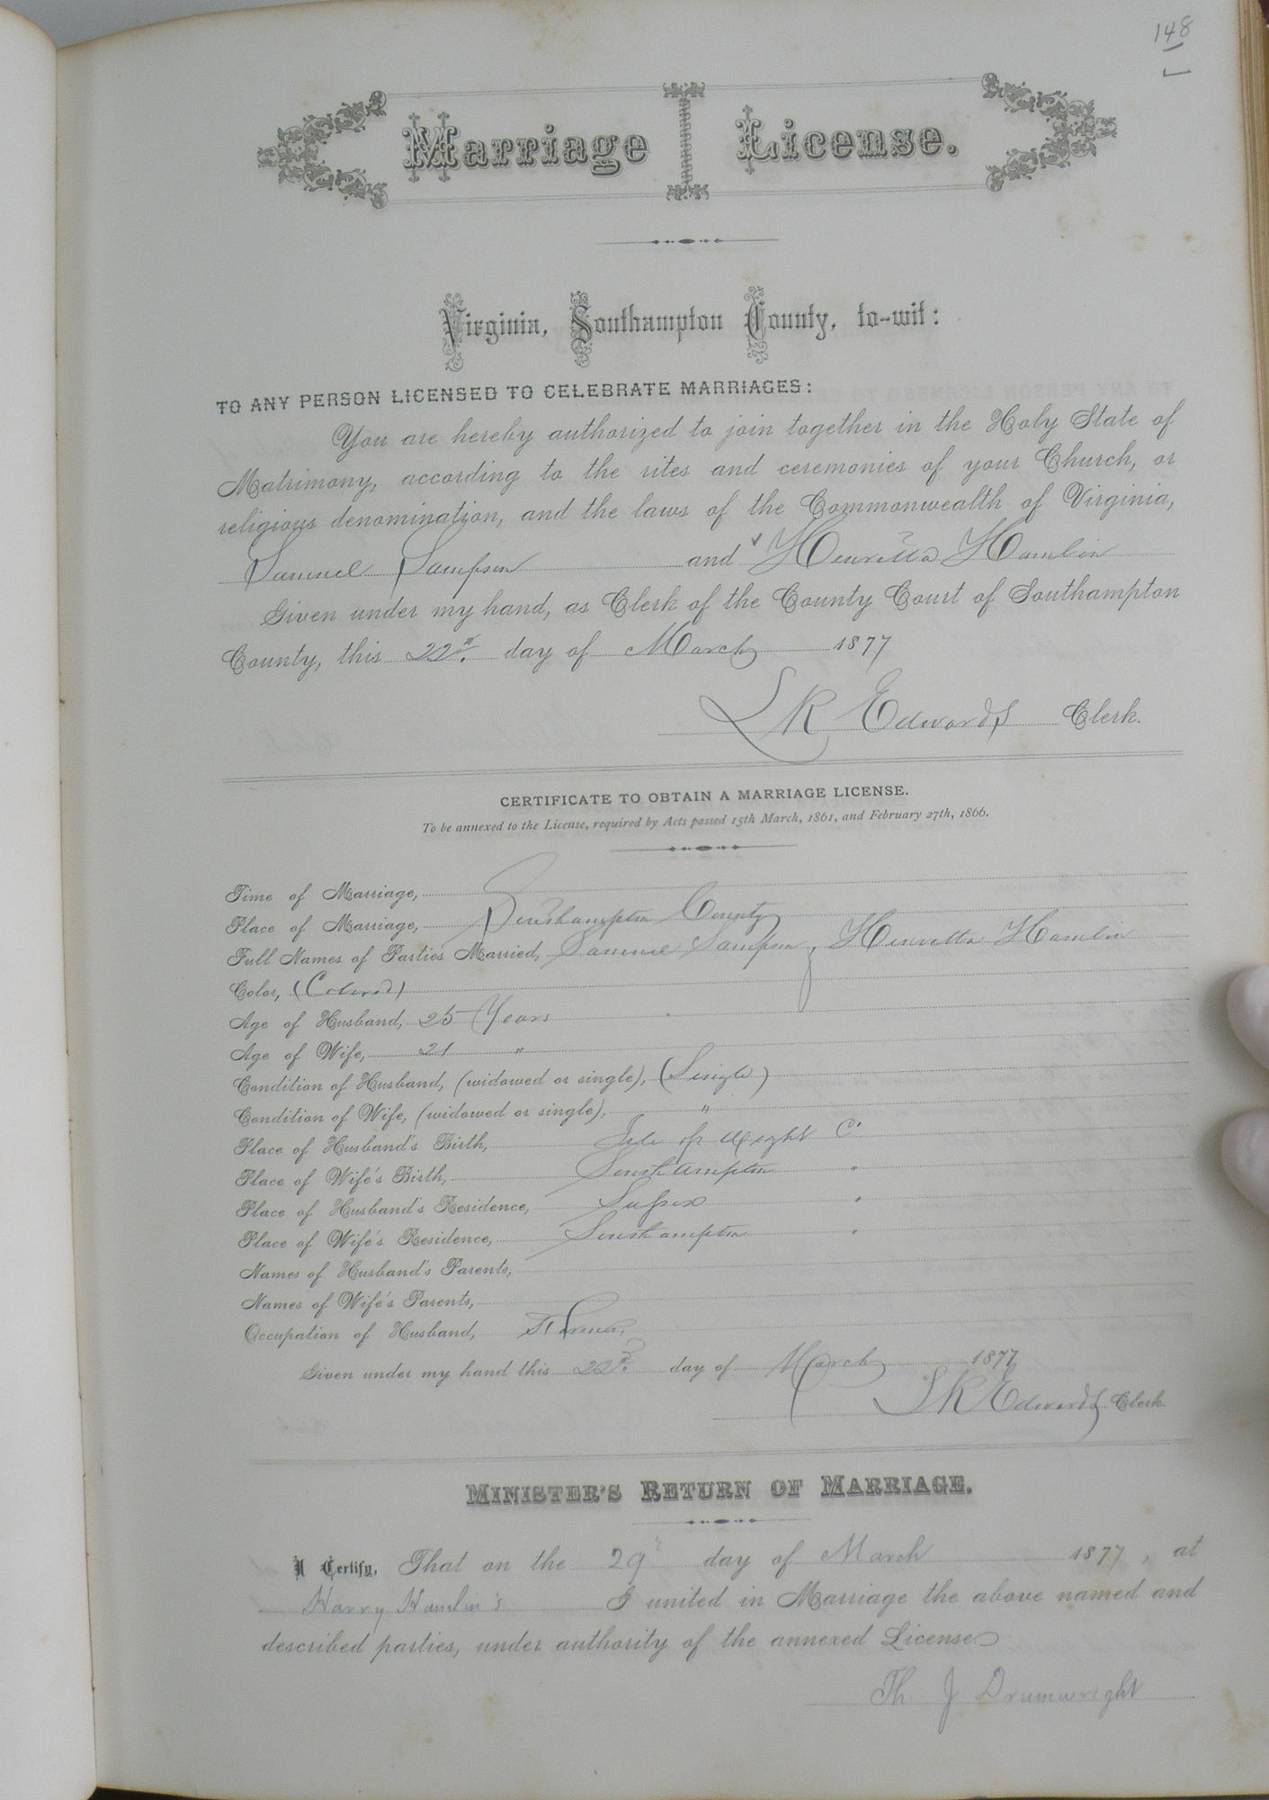 148
Marriage License.
Virginia, Southampton County, to-wit:
TO ANY PERSON LICENSED TO CELEBRATE MARRIAGES:
You are hereby authorized to join together in the Holy State of
Matrimony, according to the rites and ceremonies of your Church, or
religious denomination, and the laws of the Commonwealth of Virginia,
Samuel Sampson and Henrietta Hamlin
Given under my hand, as Clerk of the County Court of Southampton
County, this 22d. day of March 1877
L R Edwards Clerk.
CERTIFICATE TO OBTAIN A MARRIAGE LICENSE.
To be annexed to the License, required by Acts passed 15th March, 1861, and February 27th, 1866.
Time of Marriage,
Place of Marriage, Southampton County
Full Names of Parties Married, Samuel Sampson, Henrietta Hamlin
Color, (Colored)
Age of Husband, 25 Years
Age of Wife, 21 "
Condition of Husband, (widowed or single), (Single)
Condition of Wife, (widowed or single), "
Place of Husband's Birth, Isle of Wight C.
Place of Wife's Birth, Southampton "
Place of Husband's Residence, Sussex "
Place of Wife's Residence, Southampton "
Names of Husband's Parents,
Names of Wife's Parents,
Occupation of Husband, Farmer,
Given under my hand this 22d. day of March 1877
L R Edwards Clerk
MINISTER'S RETURN OF MARRIAGE.
I Certify, That on the 29 day of March 1877, at
Harry Hamlin's I united in Marriage the above named and
described parties, under authority of the annexed License
Th J Drumwright